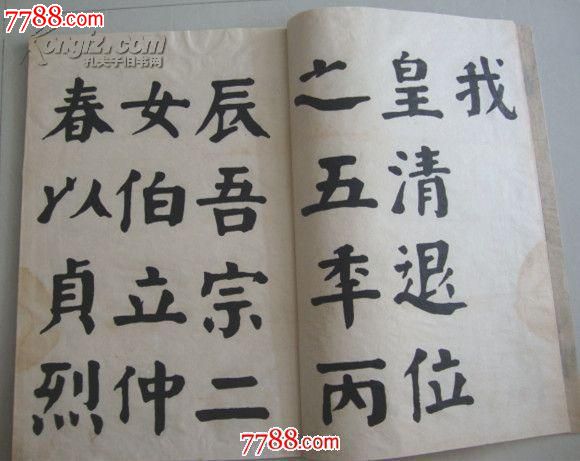 我
皇清退位
之五年丙
辰吾宗二
女伯立仲
春以貞烈
7788.com
Kongfz.com
孔夫子旧书网
7788.com
7788.com
7788.com